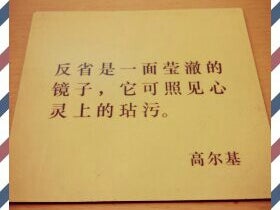 反省是一面莹澈的
镜子，它可照见心
灵上的玷污。
高尔基